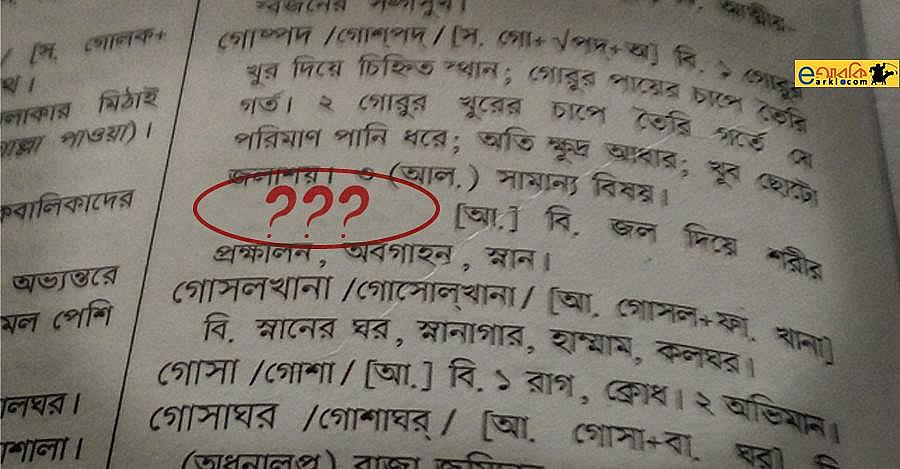 / [স. গোলক+
থ।
লাকার মিঠাই
পাওয়া)।
কবালিকাদের
অভ্যন্তরে
মল পেশি
লঘর।
শালা।
গোষ্পদ /গোশ্‌পদ্‌/ [স. গো+√পদ্‌+অ] বি. ১ গোরুর
খুর দিয়ে চিহ্নিত স্থান; গোরুর পায়ের চাপে তৈরি
গর্ত। ২ গোরুর খুরের চাপে তৈরি গর্তে যে
পরিমাণ পানি ধরে; অতি ক্ষুদ্র আধার; খুব ছোটো
জলাশয়। ৩ (আল.) সামান্য বিষয়।
??? [আ.] বি. জল দিয়ে শরীর
প্রক্ষালন, অবগাহন, স্নান।
গোসলখানা /গোসোল্‌খানা/ [আ. গোসল+ফা. খানা]
বি. স্নানের ঘর, স্নানাগার, হাম্মাম, কলঘর।
গোসা /গোশা/ [আ.] বি. ১ রাগ, ক্রোধ। ২ অভিমান।
গোসাঘর /গোশাঘর্‌/ [আ. গোসা+বা. ঘর] বি
(অধুনালুপ্ত) রাজা
eআরকি
earki.com